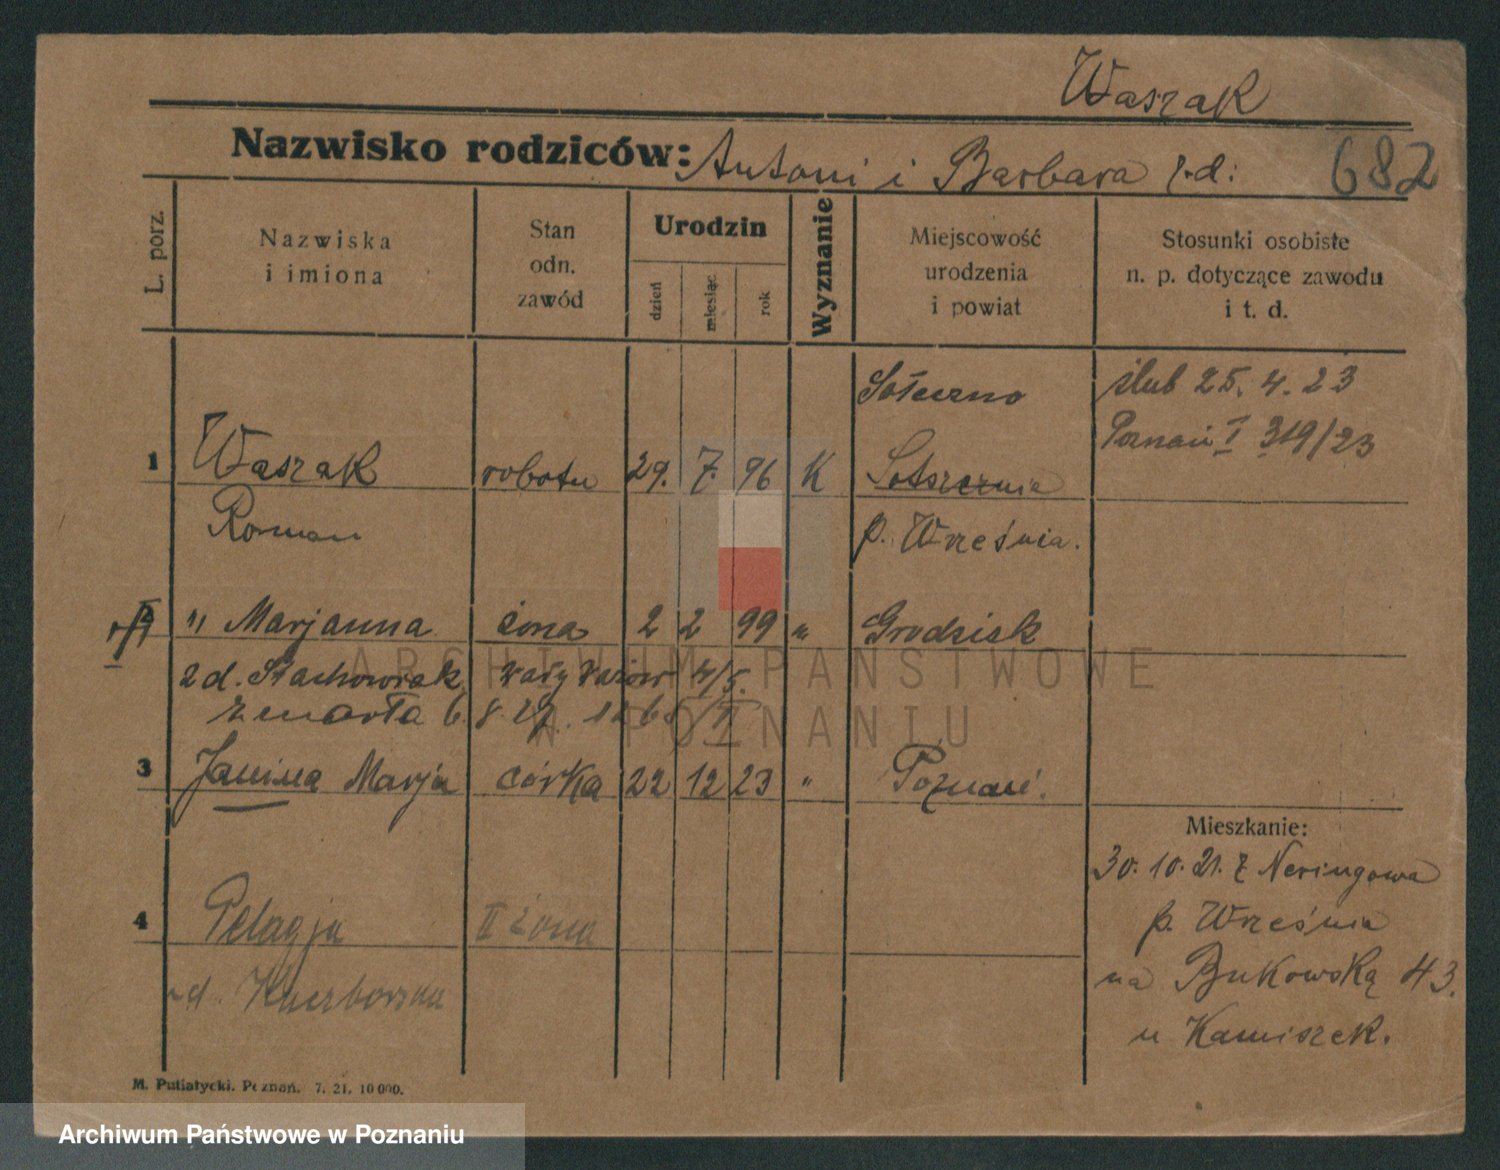 Waszak
Nazwisko rodziców: Antoni i Barbara z.d:
682
L. porz.
Nazwiska
i imiona
Stan
odn.
zawód
Urodzin
dzień
miesiąc
rok
Wyznanie
Miejscowość
urodzenia
i powiat
Stosunki osobiste
n. p. dotyczące zawodu
i t. d.
1
Waszak
Roman
robotn
29. 7. 96
K
p. Września.
ślub 25. 4. 23
Poznań I 319/23
" Marjanna
żona
2 2 99
"
Grodzisk
zd. Stachowiak
zmarła 6. 8. 27.
3
Janina Marja
córka
22 12 23
"
Poznań.
4
Pelagja
II żona
Mieszkanie:
30. 10. 21. z Neringowa
p. Września
na Bukowską 43.
u Kamiszek.
M. Putiatycki. Poznań. 7. 21. 10000.
ARCHIWUM PAŃSTWOWE
W POZNANIU
Archiwum Państwowe w Poznaniu